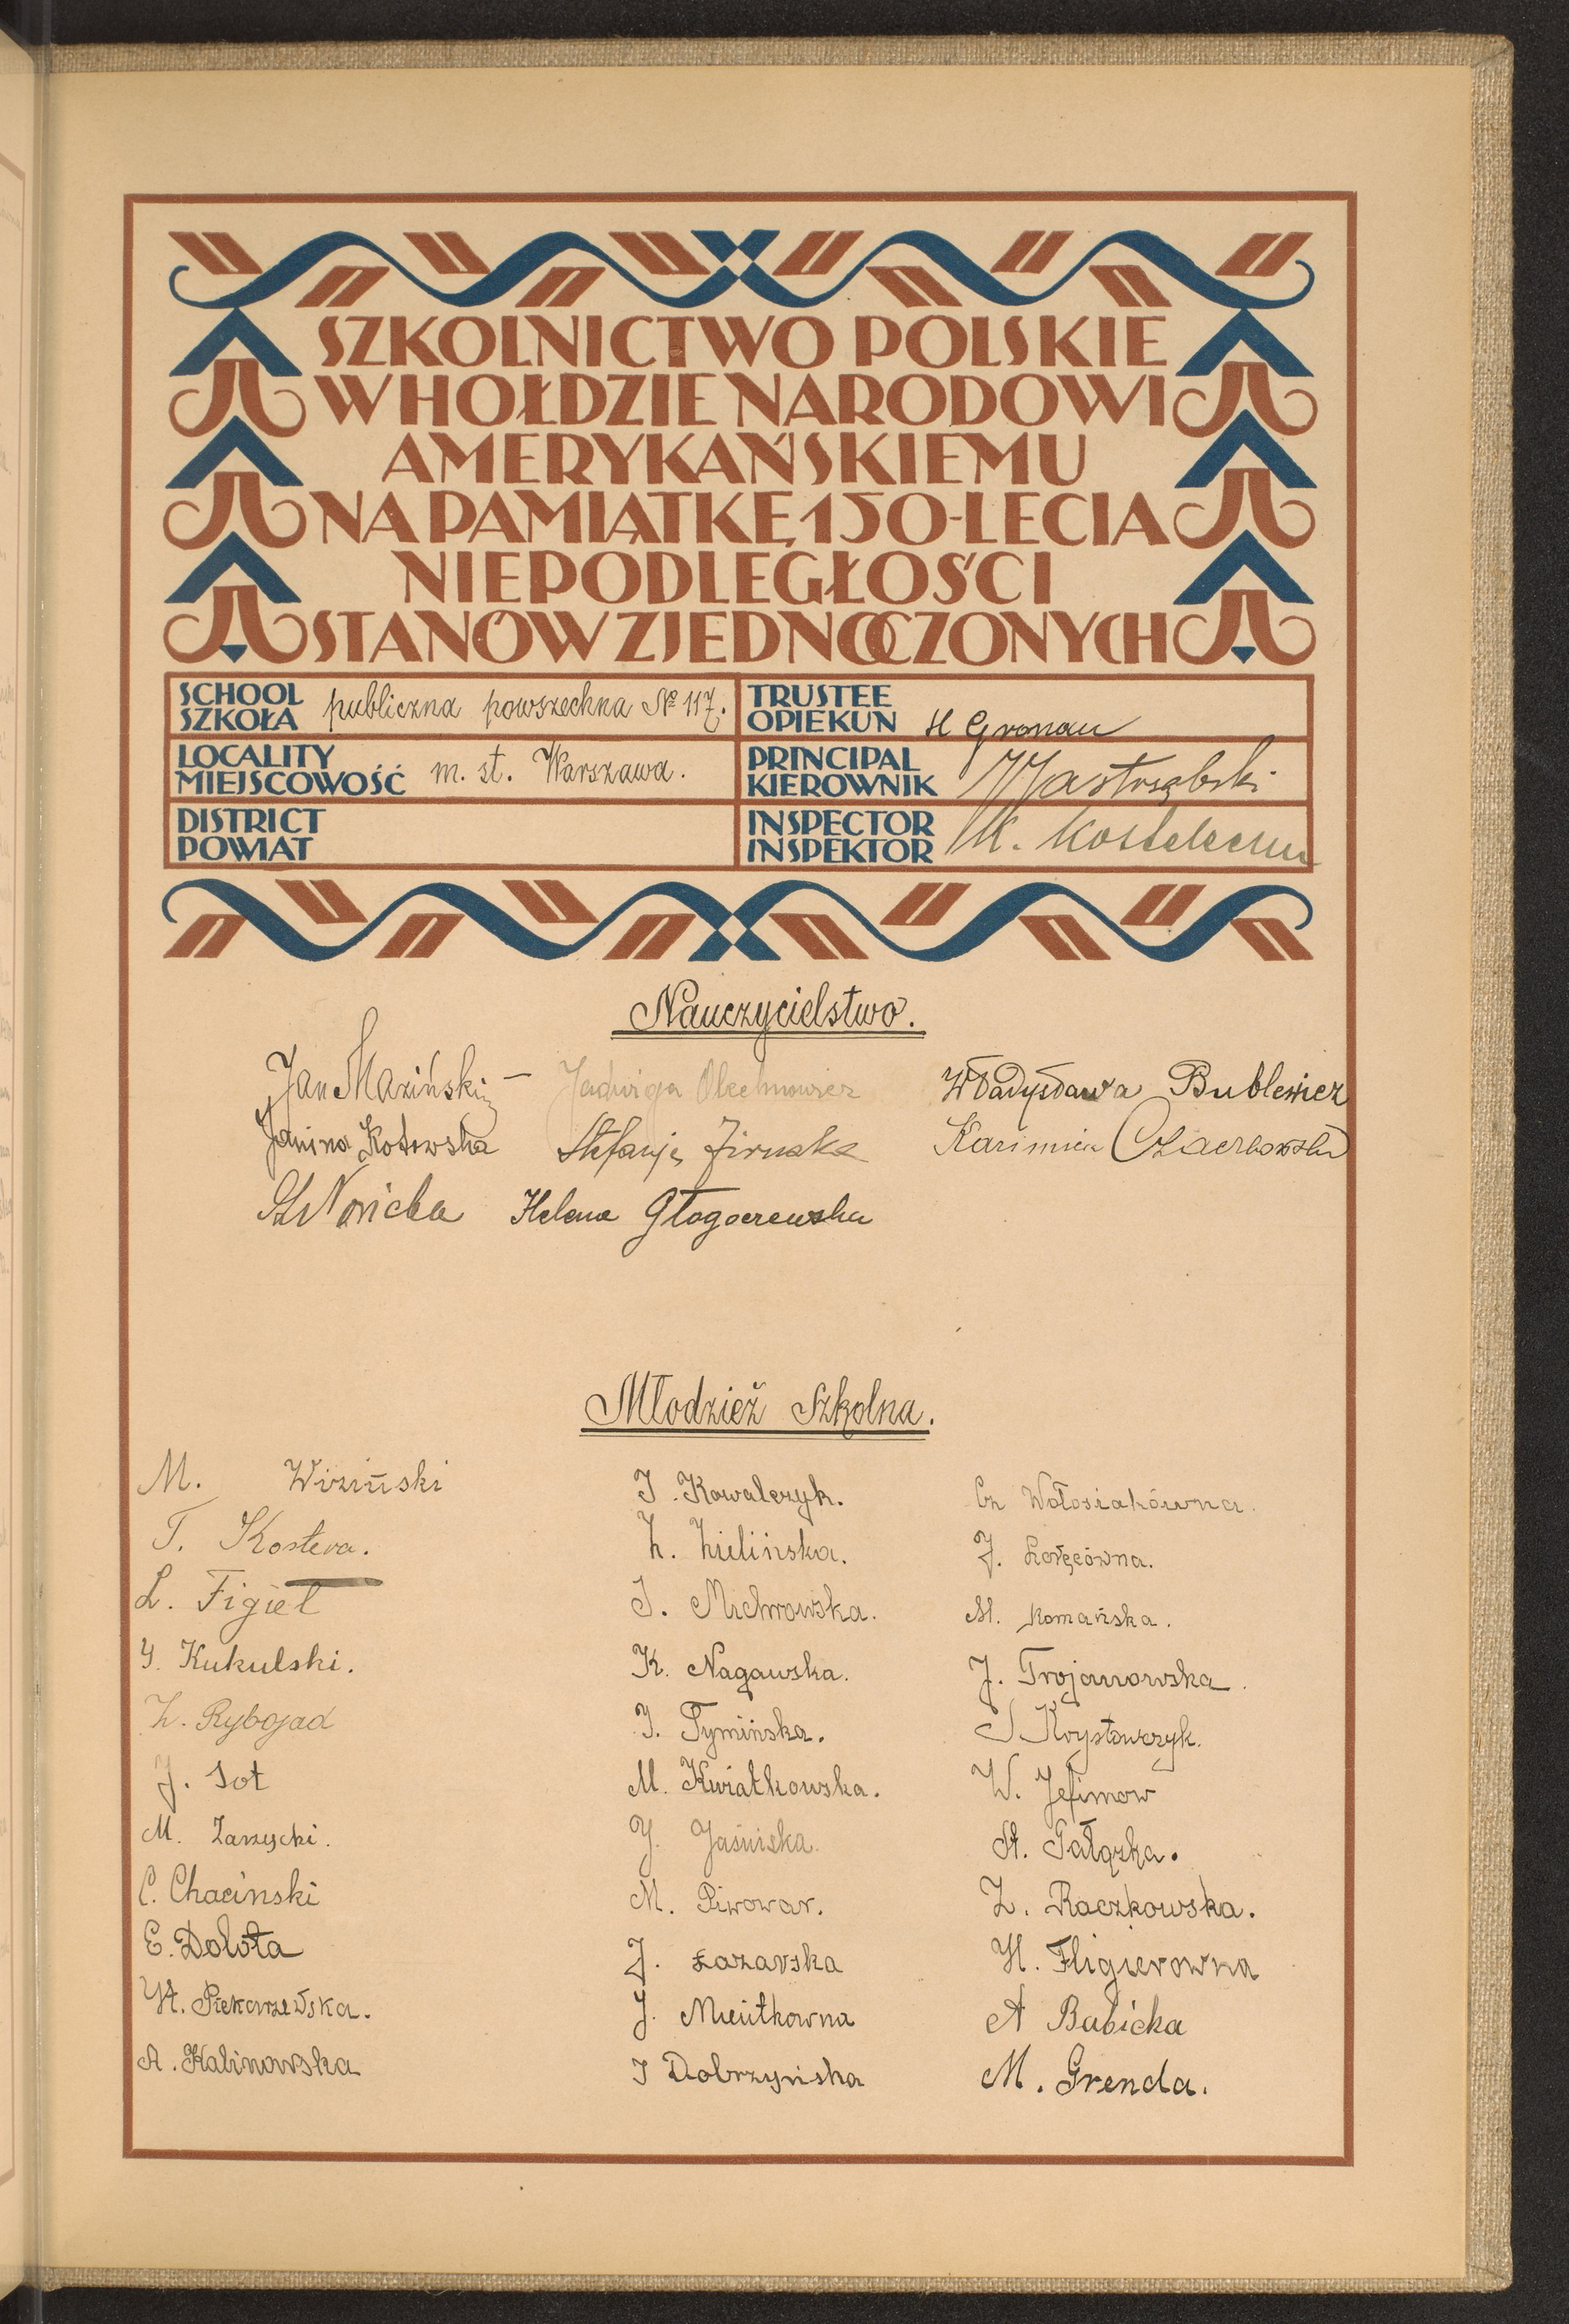 SZKOLNICTWO POLSKIE
W HOŁDZIE NARODOWI
AMERYKAŃSKIEMU
NA PAMIĄTKĘ 150-LECIA
NIEPODLEGŁOŚCI
STANÓW ZJEDNOCZONYCH
SCHOOL
SZKOŁA publiczna powszechna № 117.
TRUSTEE
OPIEKUN H Gronau
LOCALITY
MIEJSCOWOŚĆ m. st. Warszawa.
PRINCIPAL
KIEROWNIK Jastrzębski
DISTRICT
POWIAT
INSPECTOR
INSPEKTOR K.
Nauczycielstwo.
Jan Maziński
Jadwiga Olechnowicz
Władysława Bublewicz
Janina Kotowska
Stefanja
Kazimiera
Helena Głogoczewska
Młodzież Szkolna.
M. Wiziński
T. Kostera.
L. Figiel
Kukulski.
Z. Rybojad
J. Sot
M. Zarzycki.
C. Chaciński
E. Dołota
St. Piekarzewska.
A. Kalinowska
I. Kowalczyk.
Z. Zielińska.
I. Michrowska.
K. Nagawska.
I. Tymińska.
M. Kwiatkowska.
J. Jasińska.
M. Piwowar.
J. Łazarska
J.
I Dobrzyńska
Cz Wołosiakówna.
J.
M. Romańska.
J. Trojanowska.
W. Jefimow
St. Gałązka.
Z. Raczkowska.
H. Fligierowna
A Babicka
M. Grenda.